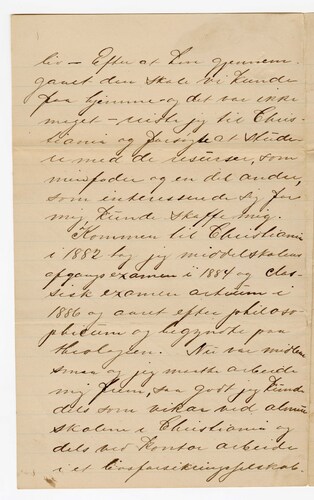 liv — Efter at han gjennem-
gaaet den skole vi kunde
faa hjemme og det var ikke
meget — reiste jeg til Chris-
tiania og forsøgte at stude-
re med de resurser, som
min fader og en del andre,
som interesserede sig for
mig, kunde skaffe mig.
Kommen til Christiania
i 1882 tog jeg middelskolens
afgangsexamen i 1884 og clas-
sisk examen artium i
1886 og aaret efter philoso-
phicum og begyndte paa
theologien. Nu var midlerne
smaa og jeg maatte arbeide
mig frem, saa godt jeg kunde
dels som vikar ved almue
skolen i Christiania og
dels ved kontor arbeide
i et Livsforsikringsselskab.